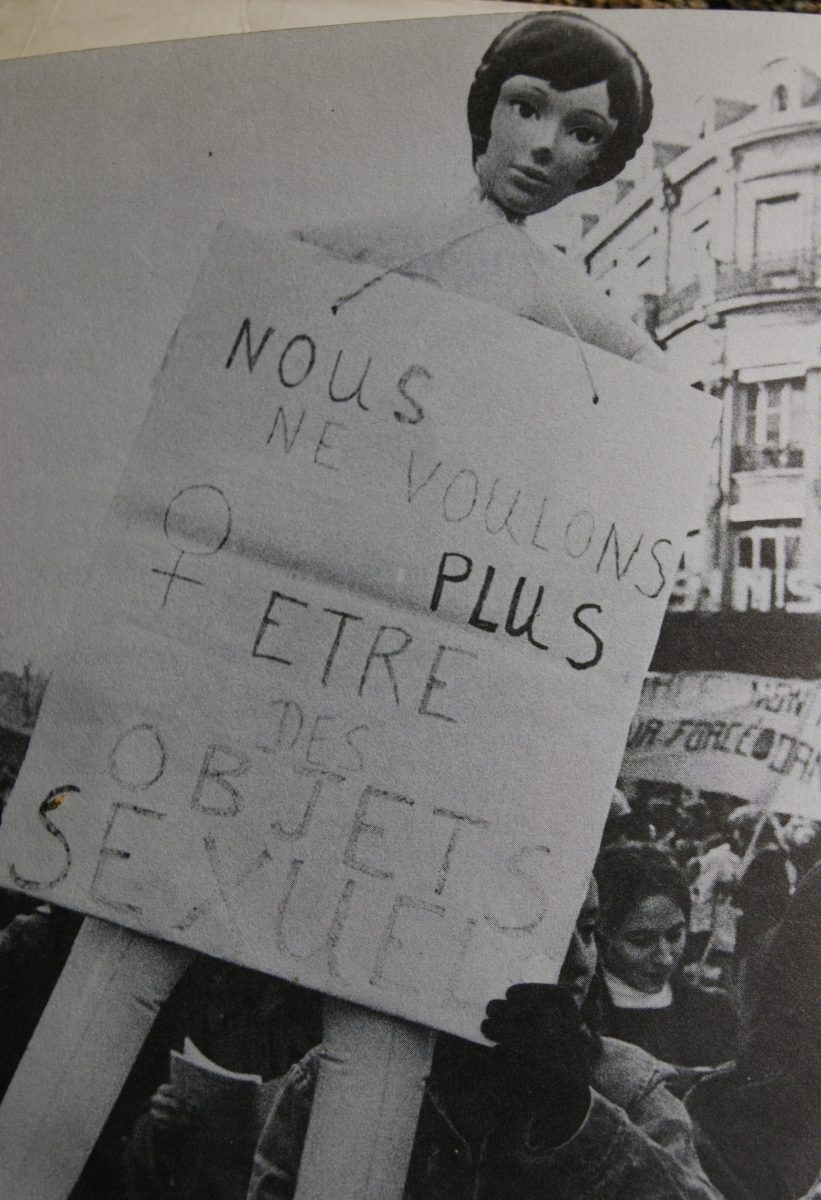 NOUS
NE VOULONS
PLUS
ETRE
DES
OBJETS
SEXUELS